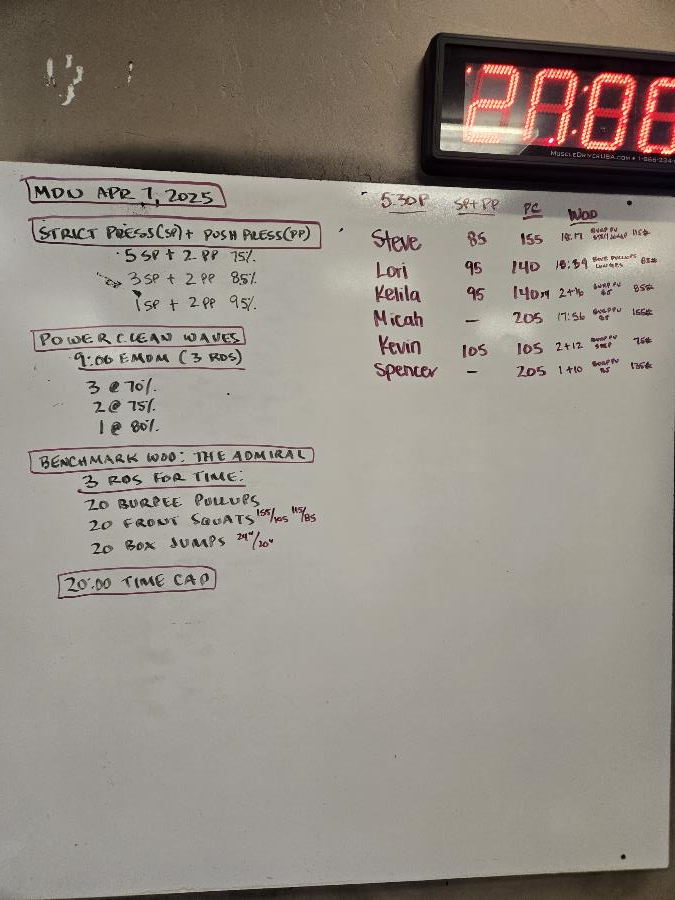 MUSCLEDRIVERUSA.COM • 1-866-
MON APR 7, 2025
STRICT PRESS(SP) + PUSH PRESS(PP)
5 SP + 2 PP 75%
3 SP + 2 PP 85%
1 SP + 2 PP 95%
POWER CLEAN WAVES
9:00 EMOM (3 RDS)
3 @ 70%
2 @ 75%
1 @ 80%
BENCHMARK WOD: THE ADMIRAL
3 RDS FOR TIME:
20 BURPEE PULLUPS
20 FRONT SQUATS 155/105 115/85
20 BOX JUMPS 24"/20"
20:00 TIME CAP
5:30P SP+PP PC WOD
Steve 85 155 18:17 BURP PU 115#
Lori 95 140 18:39 PULLUPS LUNGES 83#
Kelila 95 140 2+16 BURP PU 85#
Micah — 205 17:56 BURP PU 155#
Kevin 105 105 2+12 BURP PU STEP 75#
Spencer — 205 1+10 BURP PU 135#